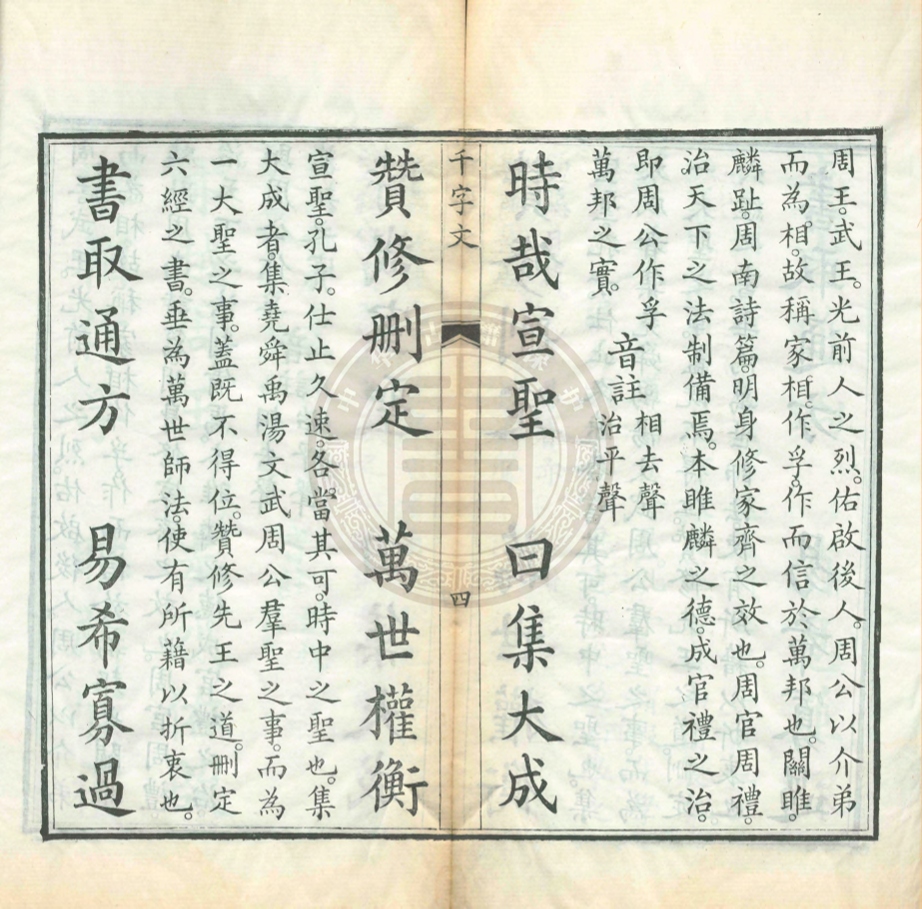 周王。武王。光前人之烈。佑啟後人。周公以介弟
而為相。故稱家相。作孚。作而信於萬邦也。關雎。
麟趾。周南詩篇。明身修家齊之效也。周官周禮。
治天下之法制備焉。本雎麟之德。成官禮之治。
即周公作孚
萬邦之實。
音註
相去聲
治平聲
時哉宣聖 曰集大成
千字文
四
贊修刪定 萬世權衡
宣聖。孔子。仕止久速。各當其可。時中之聖也。集
大成者。集堯舜禹湯文武周公羣聖之事。而為
一大聖之事。蓋既不得位。贊修先王之道。刪定
六經之書。垂為萬世師法。使有所藉以折衷也。
書取通方 易希寡過